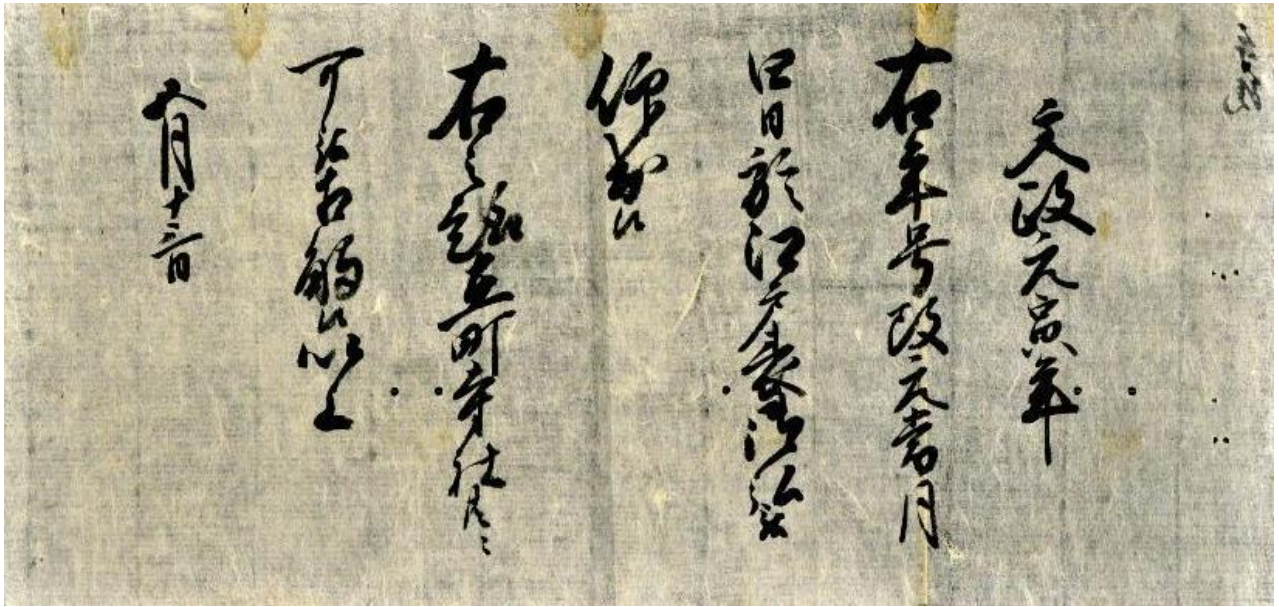 文政元寅年
右年号改元当月
四日於江戸表御弘被
仰出候
右之趣在町寺社夫々
可被相触候以上
五月十三日